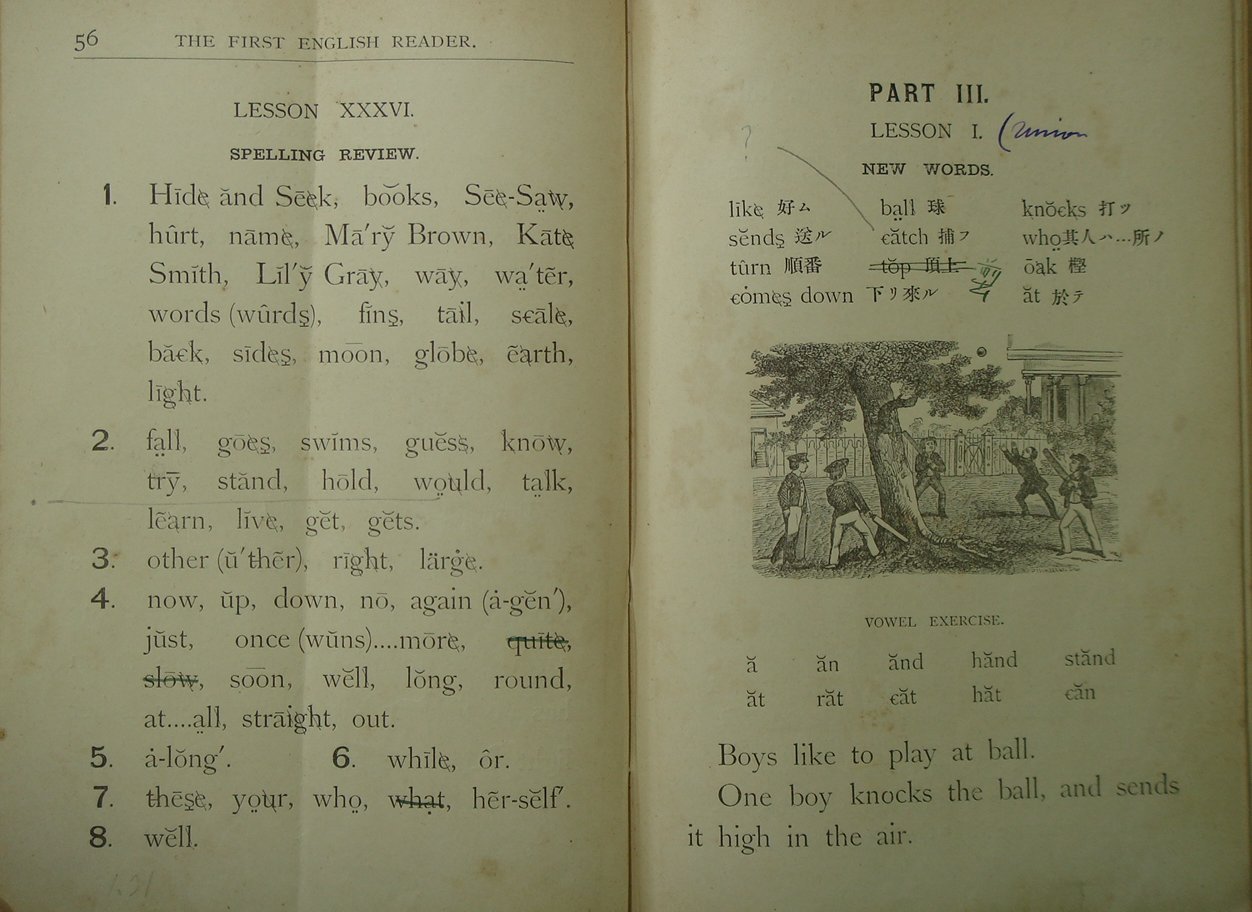 56 THE FIRST ENGLISH READER.
LESSON XXXVI.
SPELLING REVIEW.
1. Hīde ănd Sēek, bo͝oks, Sēe-Sa̤w,
hûrt, nāme, Mā′ry̆ Brown, Kāte
Smĭth, Lĭl′y̆ Grāy, wāy, wa̤′tẽr,
words (wûrdş), fĭnş, tāil, scāle,
băck, sīdeş, mo͞on, glōbe, ẽarth,
līght.
2. fa̤ll, gōeş, swĭms, guĕss, knōw,
trȳ, stănd, hōld, wo̤uld, ta̤lk,
lẽarn, lĭve, gĕt, gĕts.
3. other (ŭ′thẽr), rīght, lärġe.
4. now, ŭp, down, nō, again (ȧ-gĕn′),
jŭst, once (wŭns)....mōre, quīte,
slōw, so͞on, wĕll, lŏng, round,
at....a̤ll, strāight, out.
5. ȧ-lŏng′. 6. whīle, ôr.
7. thēşe, yo̤ur, who̤, whạt, hẽr-sĕlf′.
8. wĕll.
1.31
PART III.
LESSON I. (Union
?
NEW WORDS.
līke 好ム ba̤ll 球 knŏcks 打ツ
sĕndş 送ル cătch 捕フ who̤其人ハ…所ノ
tûrn 順番 tŏp 頂上 ōak 樫
cȯmeş down 下リ來ル ăt 於テ
VOWEL EXERCISE.
ă ăn ănd hănd stănd
ăt răt căt hăt căn
Boys like to play at ball.
One boy knocks the ball, and sends
it high in the air.